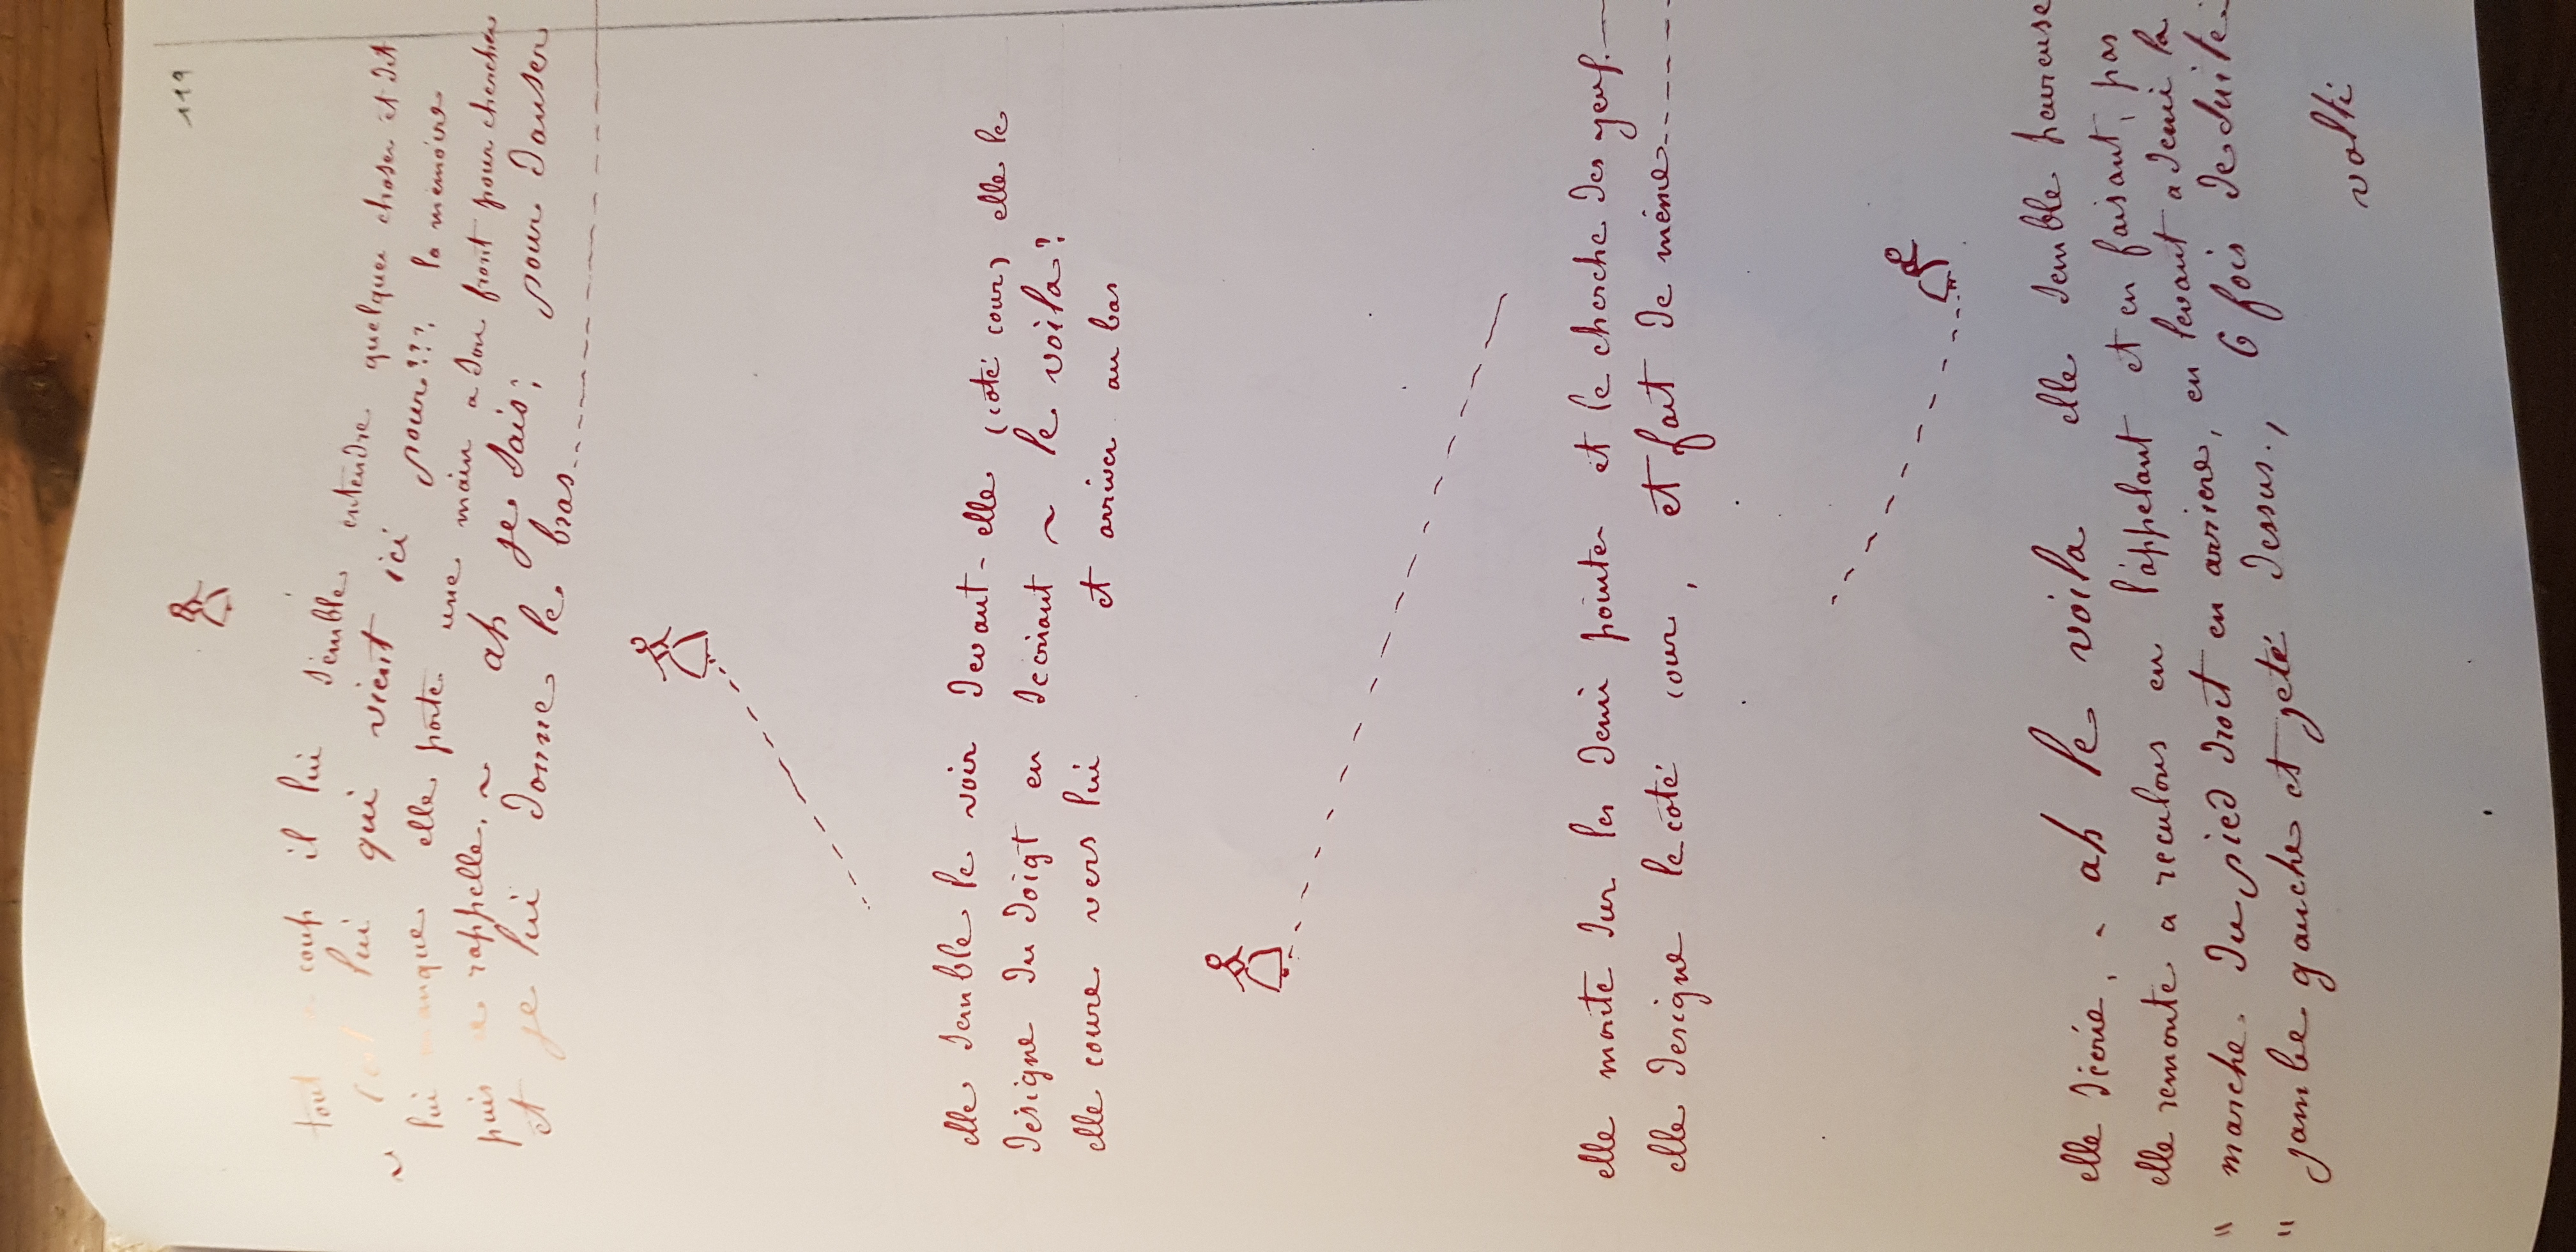 119
tout a coup il lui semble entendre quelque chose et dit
~ c'est lui qui vient ici pour???, la memoire
lui manque elle porte une main a son front pour chercher
puis se rappelle, ~ ah je sais; pour danser
et je lui donne le bras.....
elle semble le voir devant-elle (coté cour) elle le
designe du doigt en s'ecriant ~ le voila?
elle coure vers lui et arriver au bas
elle monte sur les demi pointes et le cherche des yeux.—
elle designe le coté cour, et fait de même.....
elle s'écrie, ~ ah le voila elle semble peureuse
elle remonte a reculons en l'appelant et en faisant, pas
" marche. du pied droit en arriere, en levant a demi la
" jambe gauche et jeté dessus., 6 fois de suite.
volti